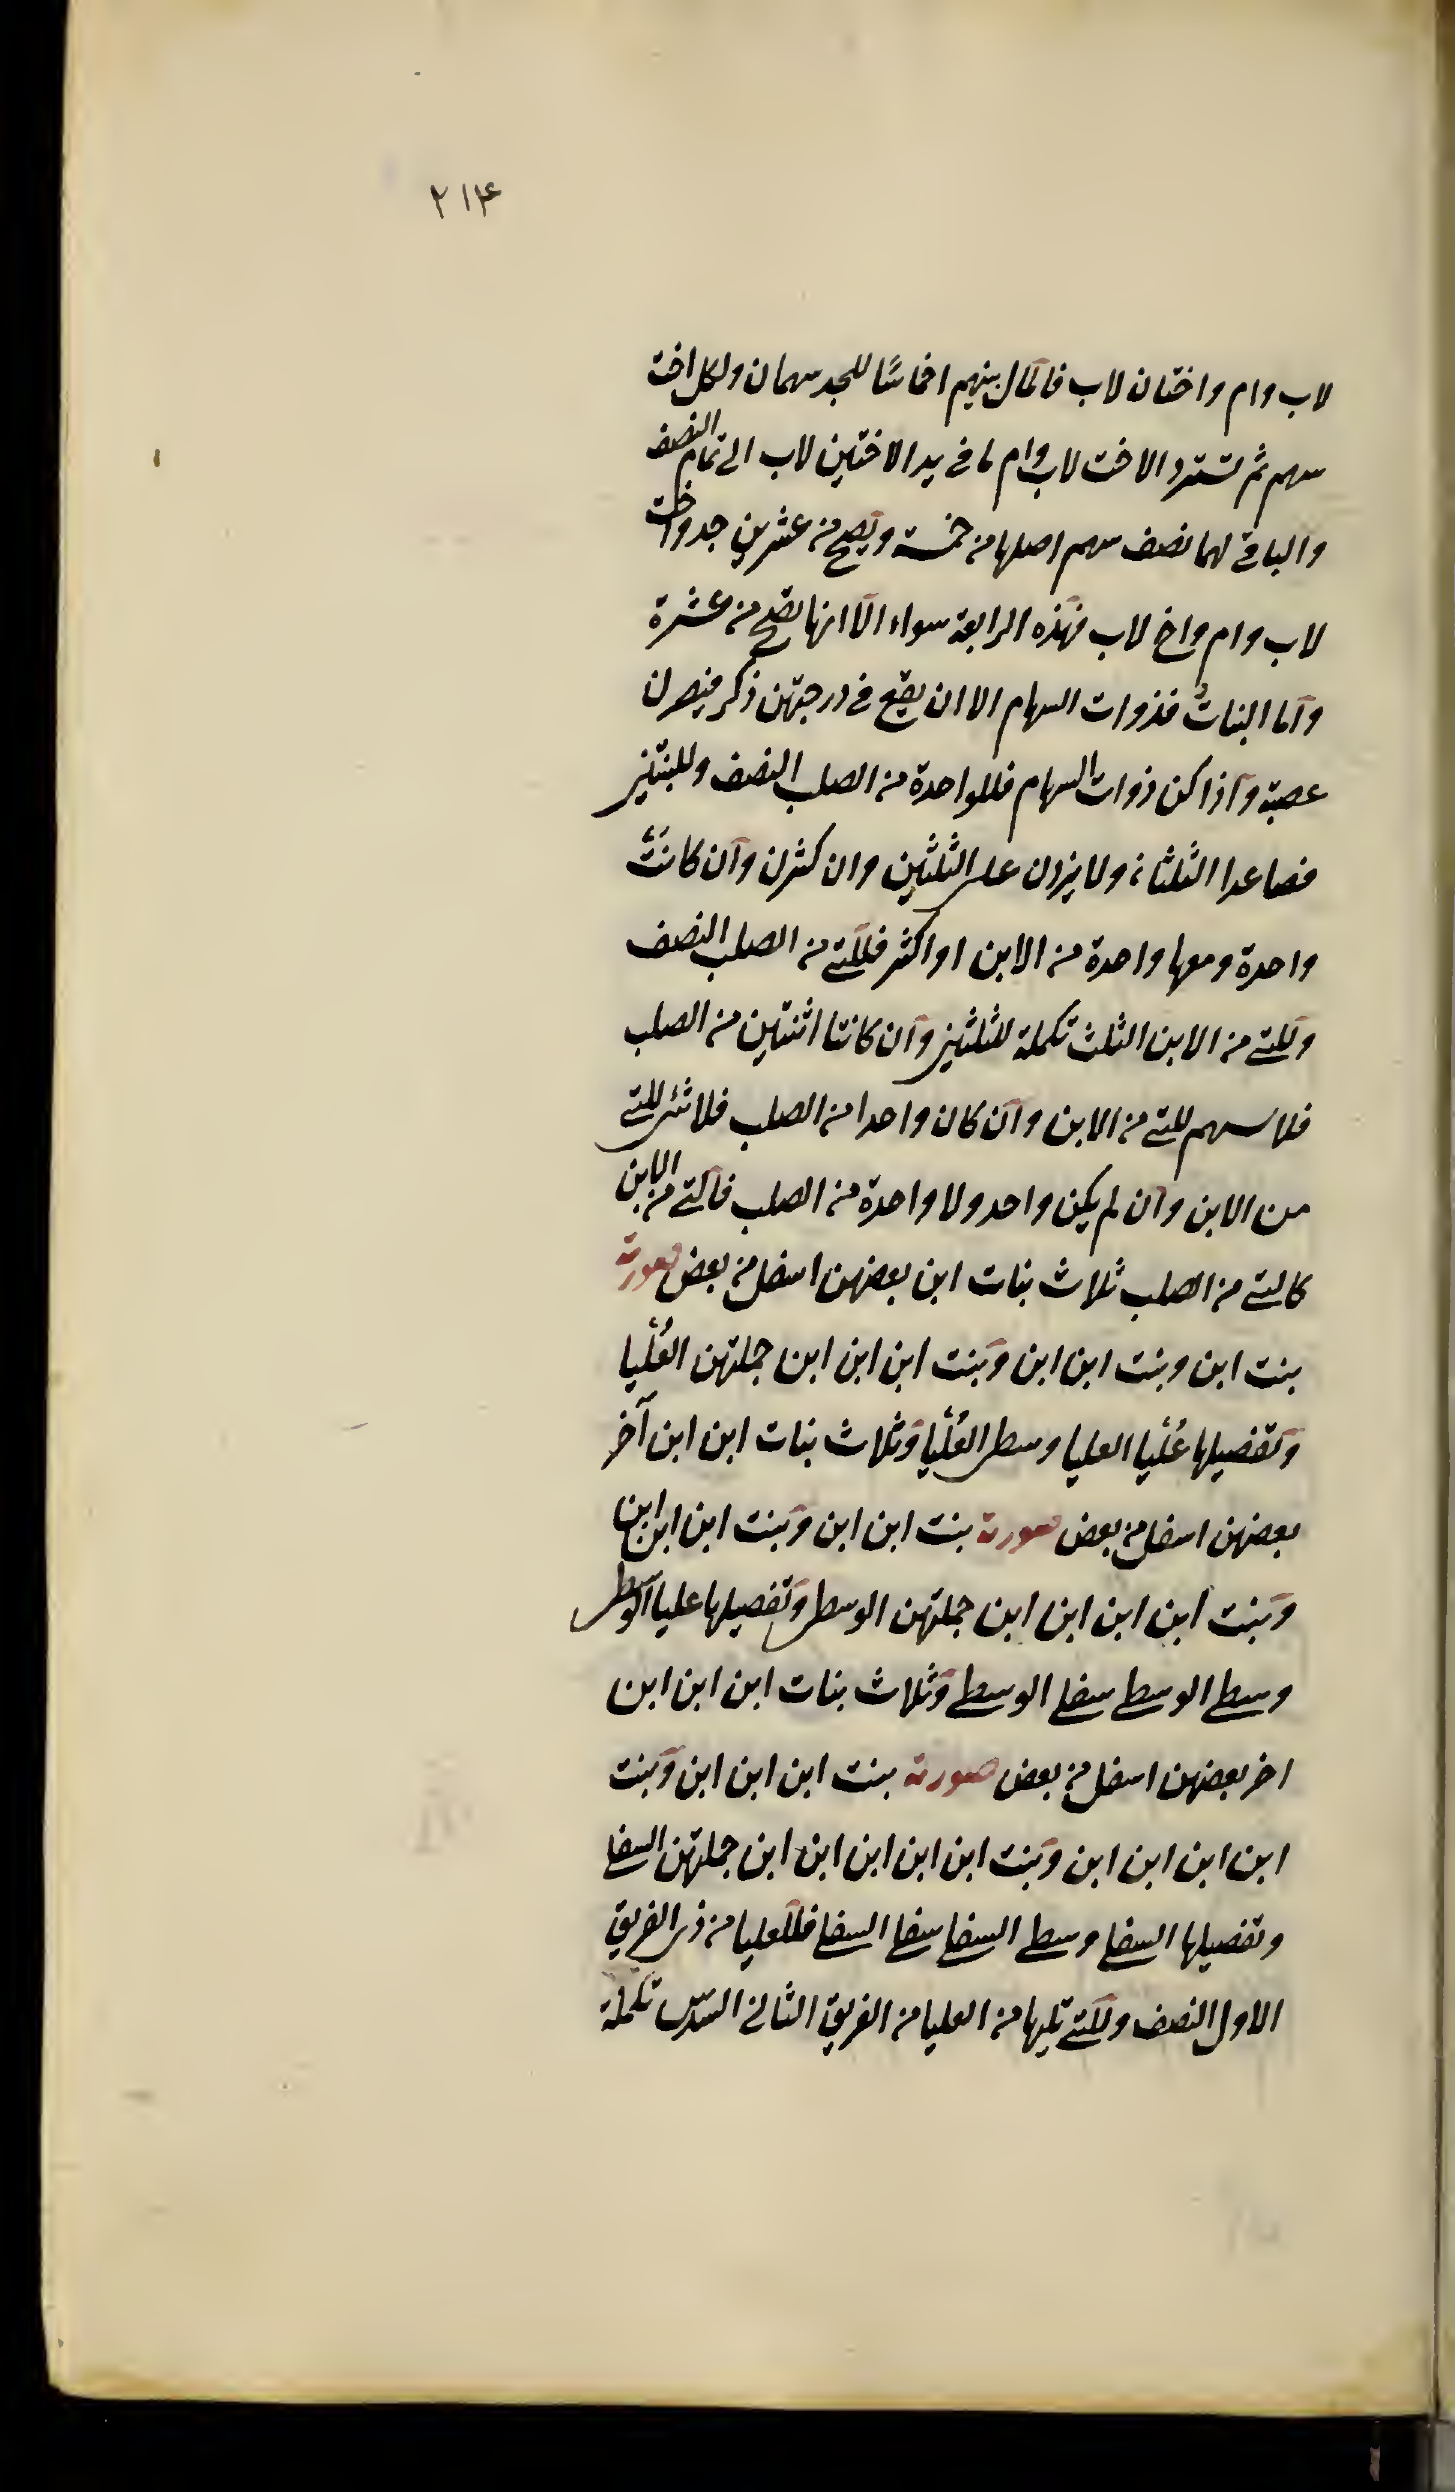 ۲۱۴
لاب وام واختان لاب فالمال بينهم اخماسًا للجد سهمان ولكل اخت
سهم ثم تسترد الاخت لاب وام ما فى يد الاختين لاب الى تمام النصف
والباقى لهما نصف سهم اصلها من خمسة ويصح من عشرين جد واخت
لاب وام واخ لاب فهذه الرابعة سواء الا انها تصح من عشرة
واما البناتُ فذوات السهام الا ان يقع فى درجتهن ذكر فيصرن
عصبة واذا كن ذوات السهام فللواحدة من الصلب النصف وللبنتين
فصاعدا الثلثان ولا يزدن على الثلثين وان كثرن وان كانتْ
واحدة ومعها واحدة من الابن او اكثر فللتى من الصلب النصف
وللتى من الابن الثلث تكملة للثلثين وان كانتا اثنتين من الصلب
فلا سهم للتى من الابن وان كان واحدا من الصلب فلا شئ للتى
من الابن وان لم يكن واحد ولا واحدة من الصلب فالتى من الابن
كالتى من الصلب ثلاث بنات ابن بعضهن اسفل من بعض صورته
بنت ابن وبنت ابن ابن وبنت ابن ابن ابن جملتهن العُلْيا
وتفصيلها عُلْيا العليا وسطى العُلْيا وثلاث بنات ابن ابن آخر
بعضهن اسفل من بعض صورته بنت ابن ابن وبنت ابن ابن ابن
وبنت ابن ابن ابن ابن جملتهن الوسطى وتفصيلها عليا الوسطى
وسطى الوسطى سفلى الوسطى وثلاث بنات ابن ابن ابن
اخر بعضهن اسفل من بعض صورته بنت ابن ابن ابن وبنت
ابن ابن ابن ابن وبنت ابن ابن ابن ابن ابن جملتهن السفلى
وتفصيلها السفلى وسطى السفلى سفلى السفلى فللعليا من ذى الفريق
الاول النصف وللتى تليها من العليا من الفريق الثانى السدس تكملة